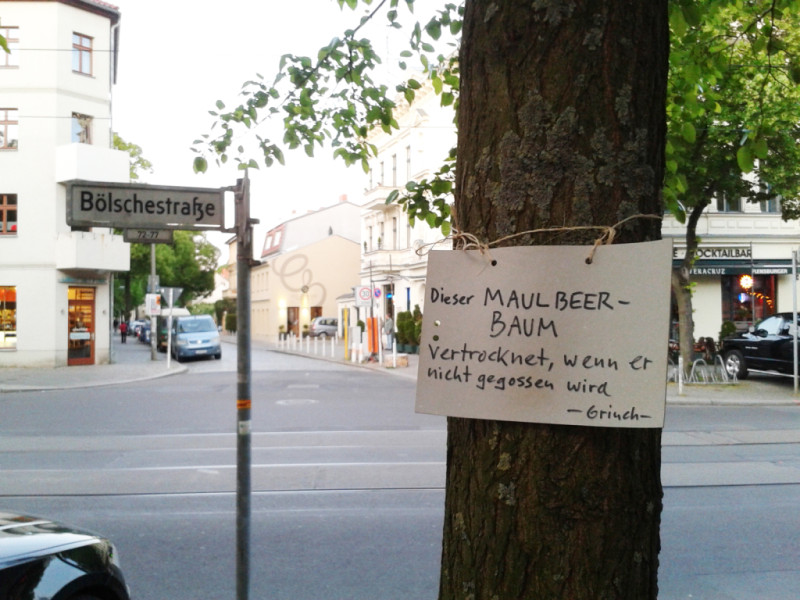 Bölschestraße
72-77
Dieser MAULBEER-
BAUM
vertrocknet, wenn er
nicht gegossen wird
-Grinch-
COCKTAILBAR
VERACRUZ